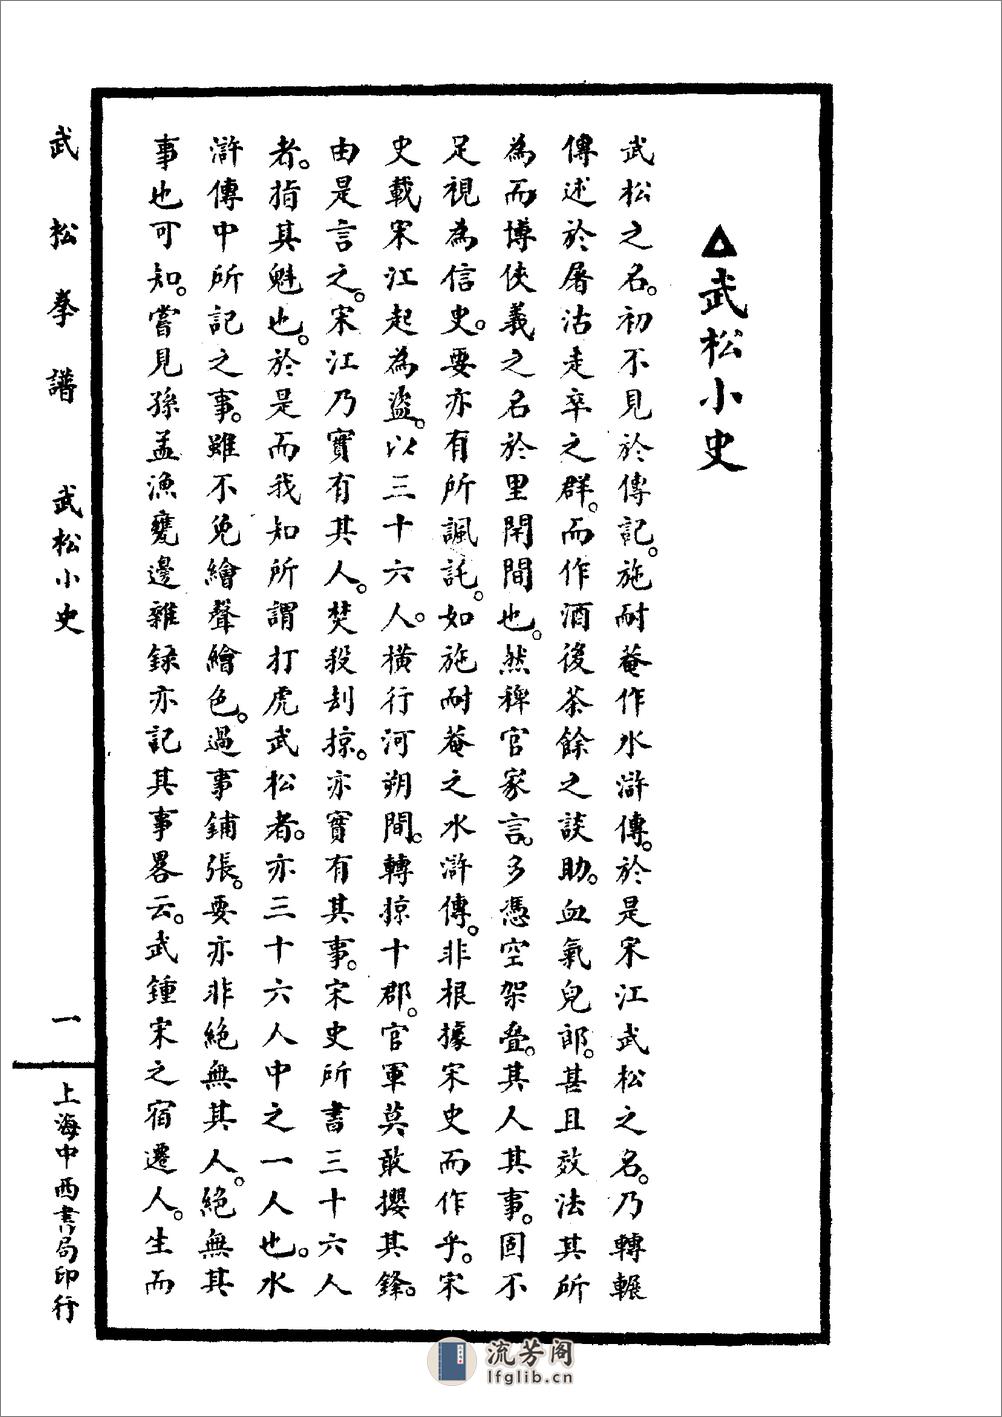 ▲武松小史
武松之名。初不見於傳記。施耐菴作水滸傳。於是宋江武松之名。乃轉輾
傳述於屠沽走卒之群。而作酒後茶餘之談助。血氣兒郎。甚且效法其所
為而博俠義之名於里閈間也。然稗官家言。多憑空架叠。其人其事。固不
足視為信史。要亦有所諷託。如施耐菴之水滸傳。非根據宋史而作乎。宋
史載宋江起為盜。以三十六人。橫行河朔間。轉掠十郡。官軍莫敢攖其鋒。
由是言之。宋江乃實有其人。焚殺刦掠。亦實有其事。宋史所書三十六人
者。指其魁也。於是而我知所謂打虎武松者。亦三十六人中之一人也。水
滸傳中所記之事。雖不免繪聲繪色。過事鋪張。要亦非絕無其人。絕無其
事也可知。嘗見孫孟漁甕邊雜録亦記其事畧云。武鍾宋之宿遷人。生而
武松拳譜 武松小史 一 上海中西書局印行
流芳阁
lfglib.cn